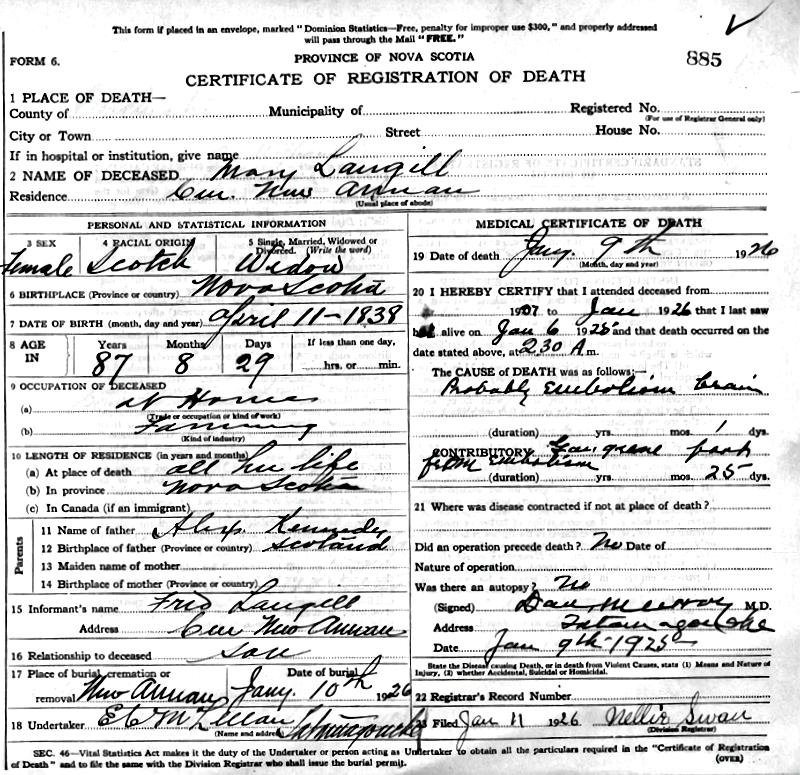 This form if placed in an envelope, marked "Dominion Statistics—Free, penalty for improper use $300," and properly addressed
will pass through the Mail "FREE."
FORM 6.
PROVINCE OF NOVA SCOTIA
885
CERTIFICATE OF REGISTRATION OF DEATH
1 PLACE OF DEATH—
County of Municipality of Registered No.
(For use of Registrar General only)
City or Town Street House No.
If in hospital or institution, give name
2 NAME OF DECEASED Mary Langill
Residence Cen. New Annan
(Usual place of abode)
PERSONAL AND STATISTICAL INFORMATION
3 SEX 4 RACIAL ORIGIN 5 Single, Married, Widowed or Divorced. (Write the word)
Female Scotch Widow
6 BIRTHPLACE (Province or country) Nova Scotia
7 DATE OF BIRTH (month, day and year) April 11-1838
8 AGE IN Years Months Days If less than one day,
87 8 29 hrs. or min.
9 OCCUPATION OF DECEASED
(a) at Home
(Trade or occupation or kind of work)
(b) Farming
(Kind of industry)
10 LENGTH OF RESIDENCE (in years and months)
(a) At place of death all her life
(b) In province Nova Scotia
(c) In Canada (if an immigrant)
Parents
11 Name of father Alex. Kennedy
12 Birthplace of father (Province or country) Scotland
13 Maiden name of mother
14 Birthplace of mother (Province or country)
15 Informant's name Fred Langill
Address Cen New Annan
16 Relationship to deceased son
17 Place of burial, cremation or removal New Annan Date of burial Jany. 10th 1926
18 Undertaker E C McLellan Tatamagouche
(Name and address)
MEDICAL CERTIFICATE OF DEATH
19 Date of death Jany. 9th 1926
(Month, day and year)
20 I HEREBY CERTIFY that I attended deceased from
1907 to Jan 1926 that I last saw
h alive on Jan 6 1925 and that death occurred on
date stated above, at 2.30 A m.
The CAUSE of DEATH was as follows:—
Probably Embolism brain
(duration) yrs. mos. 1 dys.
CONTRIBUTORY Gangrene foot
from Embolism
(duration) yrs. mos. 25 dys.
21 Where was disease contracted if not at place of death?
Did an operation precede death? No Date of
Nature of operation
Was there an autopsy? No
(Signed) Dan M.D.
Address Tatamagouche
Date Jan 9th-1925
State the Disease causing Death, or in death from Violent Causes, state (1) Means and Nature of
Injury, (2) whether Accidental, Suicidal or Homicidal.
22 Registrar's Record Number
23 Filed Jan 11 1926 Nellie Swan
(Division Registrar)
SEC. 46—Vital Statistics Act makes it the duty of the Undertaker or person acting as Undertaker to obtain all the particulars required in the "Certificate of Registration
of Death" and to file the same with the Division Registrar who shall issue the burial permit.
(OVER)